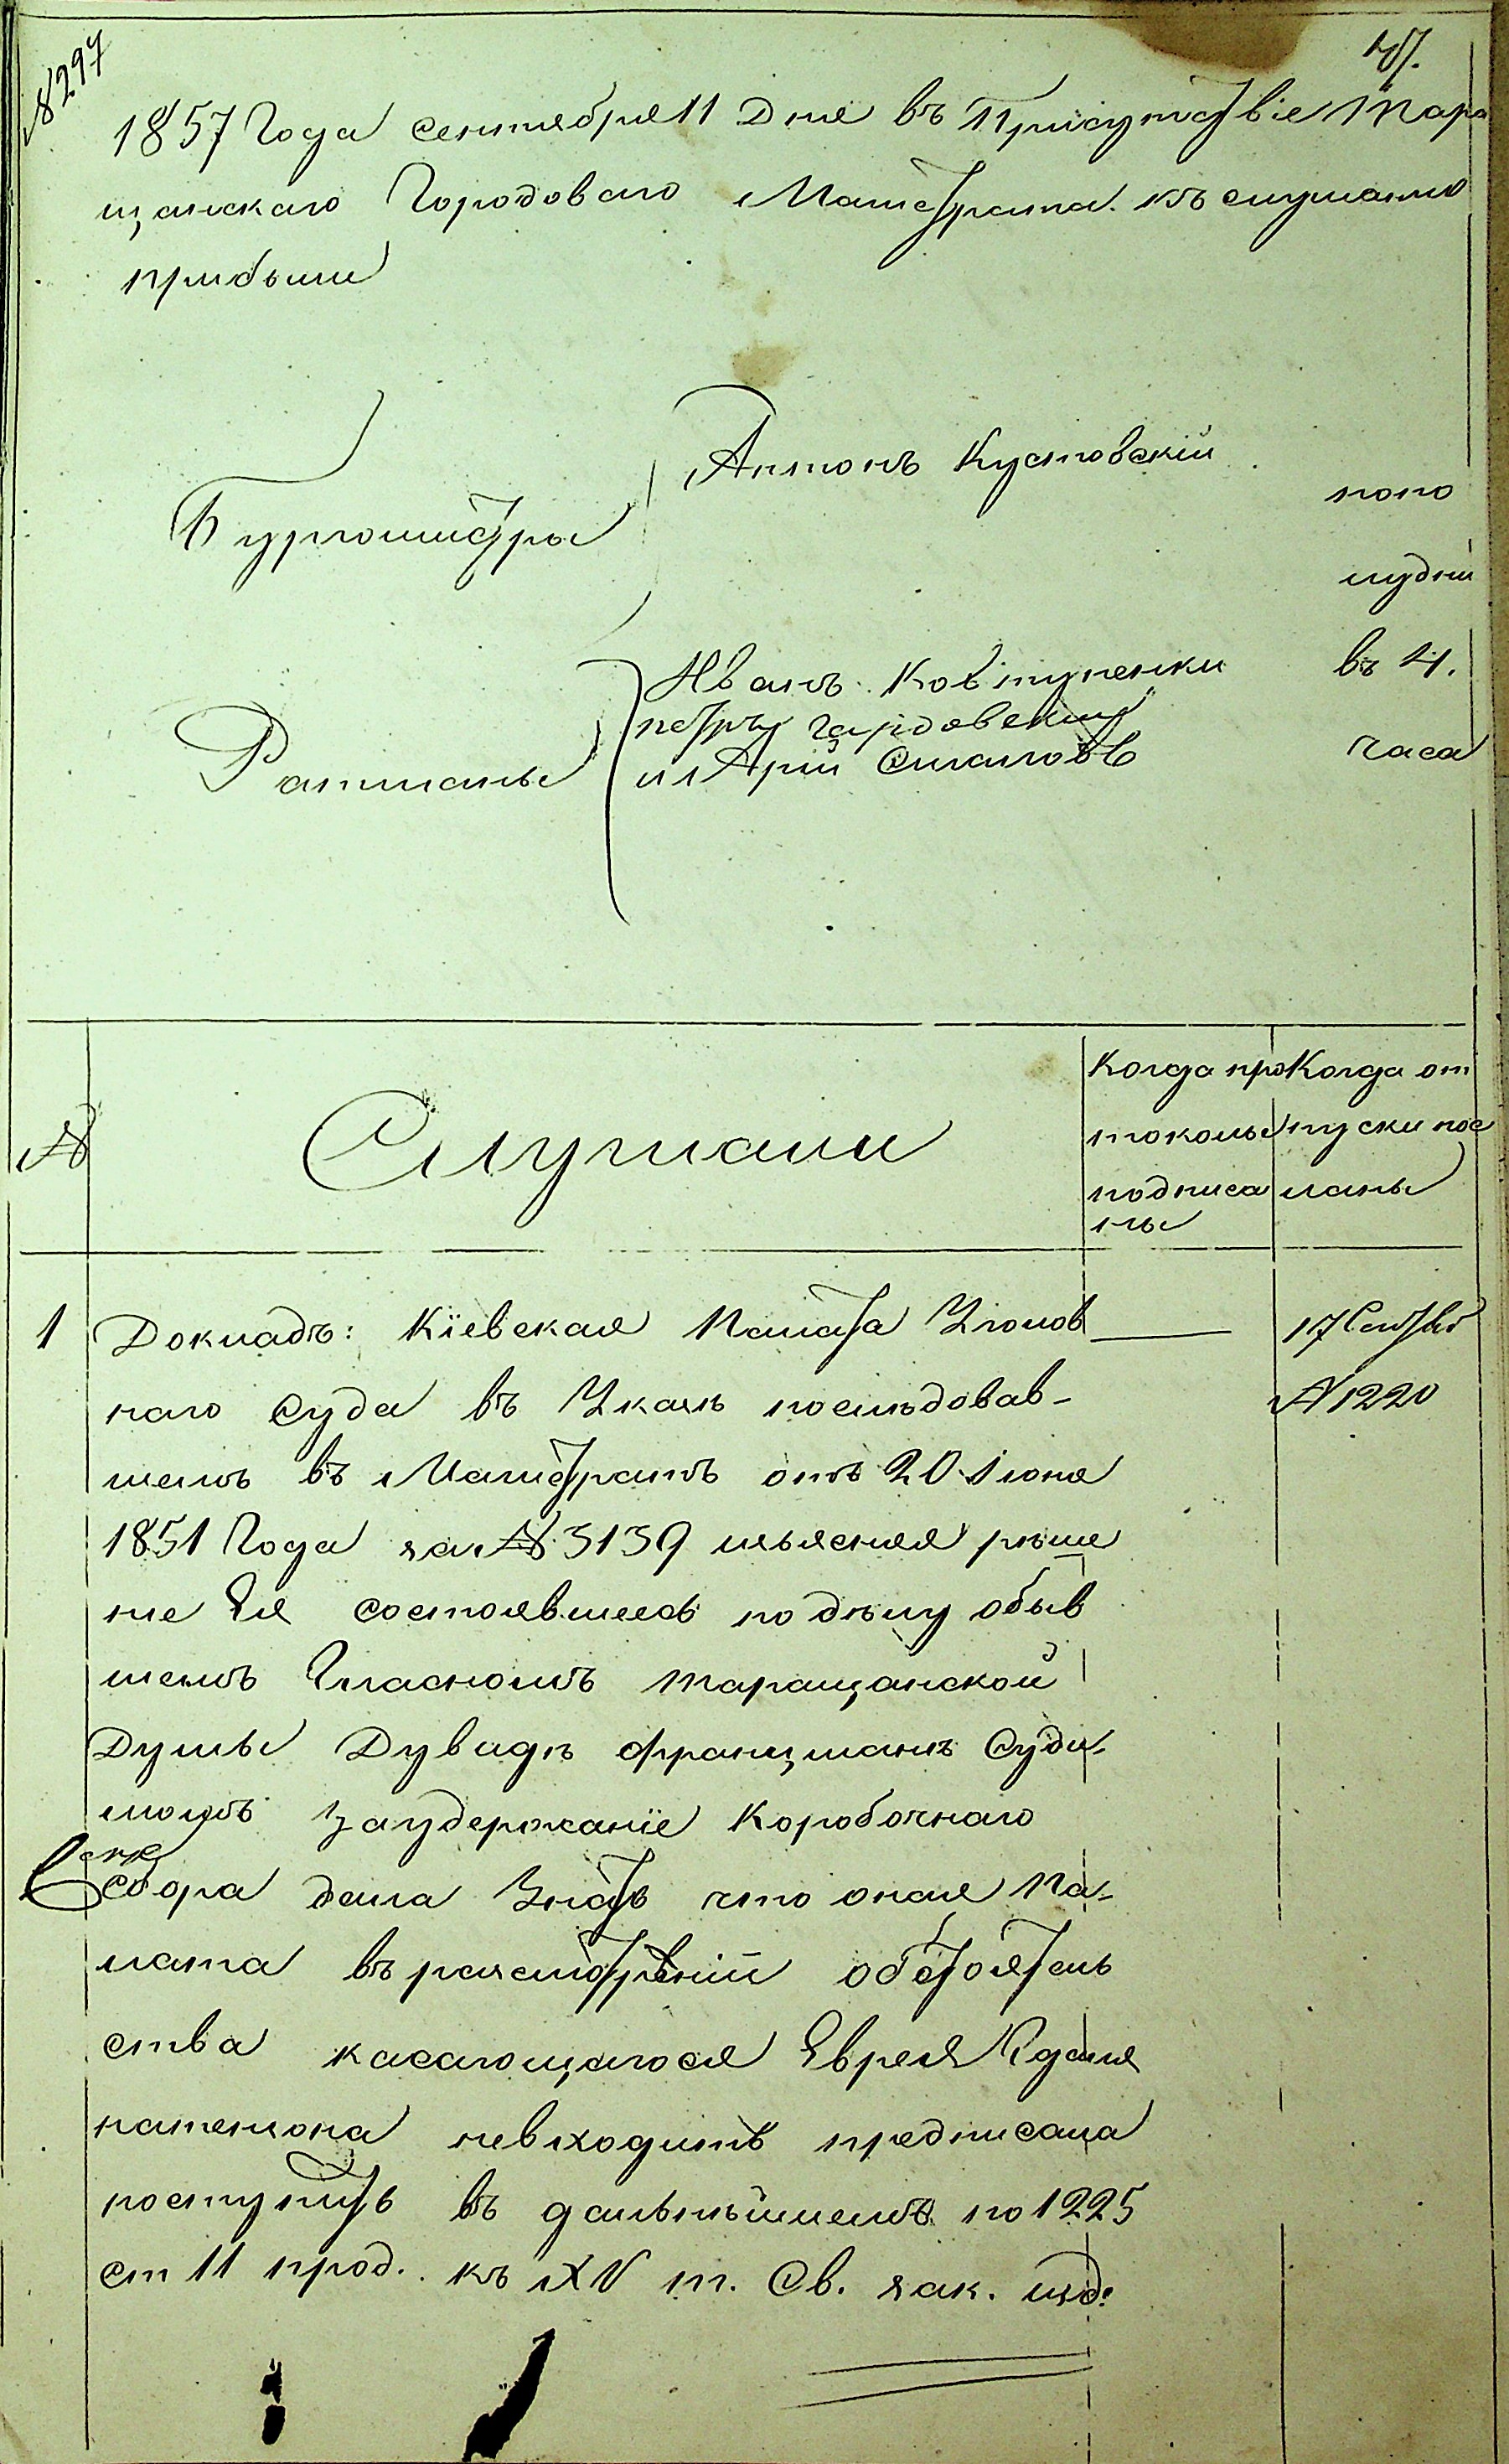 № 297
1857 Года сентября 11 Дня въ Присутствіе Тара
щанскаго Городоваго Магистрата къ слушанію
прибыли
Бургомистры
Антонъ Кустовскій
попо
лудни
Ратманы
Иванъ Ковтуненки
въ 4.
петръ
и Арій Смаловъ
часа
№
Слушали
Когда про
токолы
подписа
ны
Когда от
пуски пос
ланы
1
Докладъ: Кіевская Палата Уголов
17 Сентяб
наго суда въ Указѣ последовав-
№ 1220
шемъ въ Магистратъ отъ 20 Іюня
1851 Года за № 3139 изъясняя рѣше
ніе Ея состоявшееся по дѣлу обыв
шемъ Гласномъ таращанской
Думы Дувидѣ францманѣ Суди-
момъ за удержаніе Коробочнаго
сбора дала Знать что оная Па-
лата въ разсмотреніи обстоятель
ства касающагося Еврея
невходитъ предписала
поступить въ дальнѣйшемъ по 1225
ст 11 прод. къ XV т. Св. зак. изд.